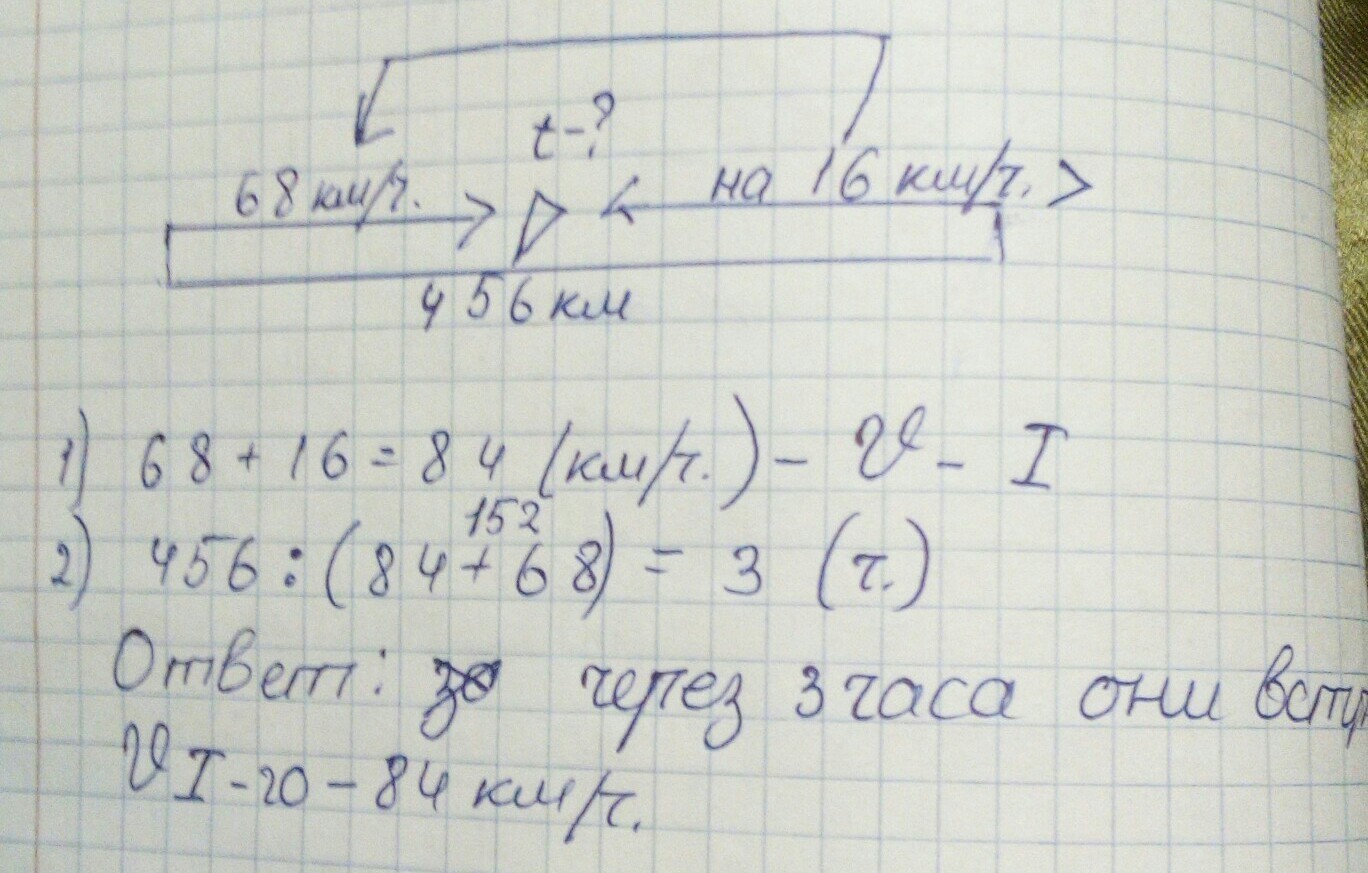 t-?
68 км/ч. на 16 км/ч. >
456 км
1) 68 + 16 = 84 (км/ч.) - V - I
152
2) 456 : (84 + 68) = 3 (ч.)
Ответ: через 3 часа они встр
V I-го - 84 км/ч.